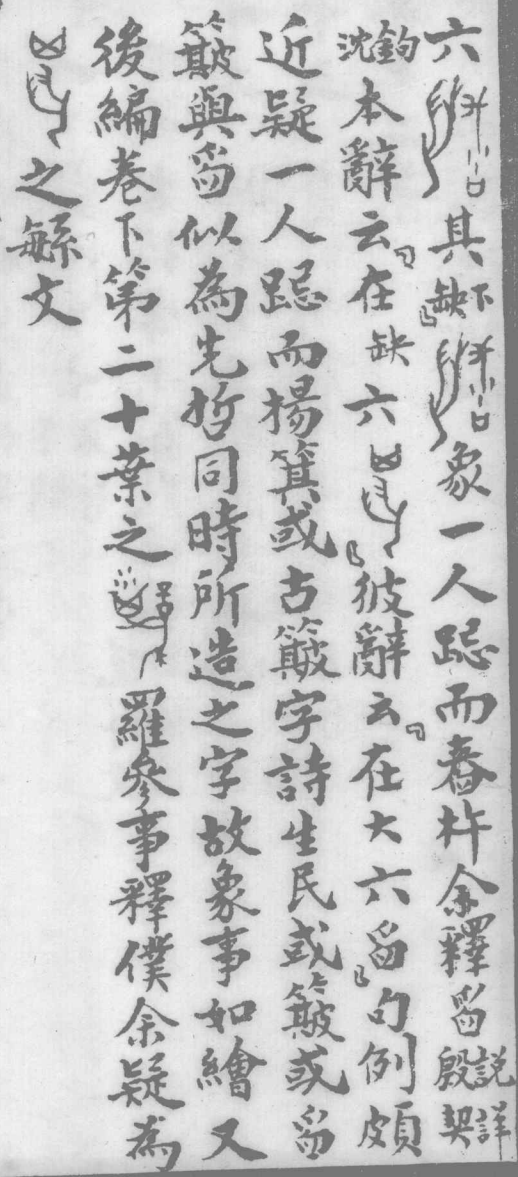 六其下缺』象一人跽而舂杵余釋舀說詳殷契
鉤沈本辭云『在缺六』彼辭云『在大六舀』句例頗
近疑一人跽而揚箕或古簸字詩生民或簸或舀
簸與舀似為先哲同時所造之字故象事如繪又
後編卷下第二十葉之羅參事釋僕余疑為
之緐文